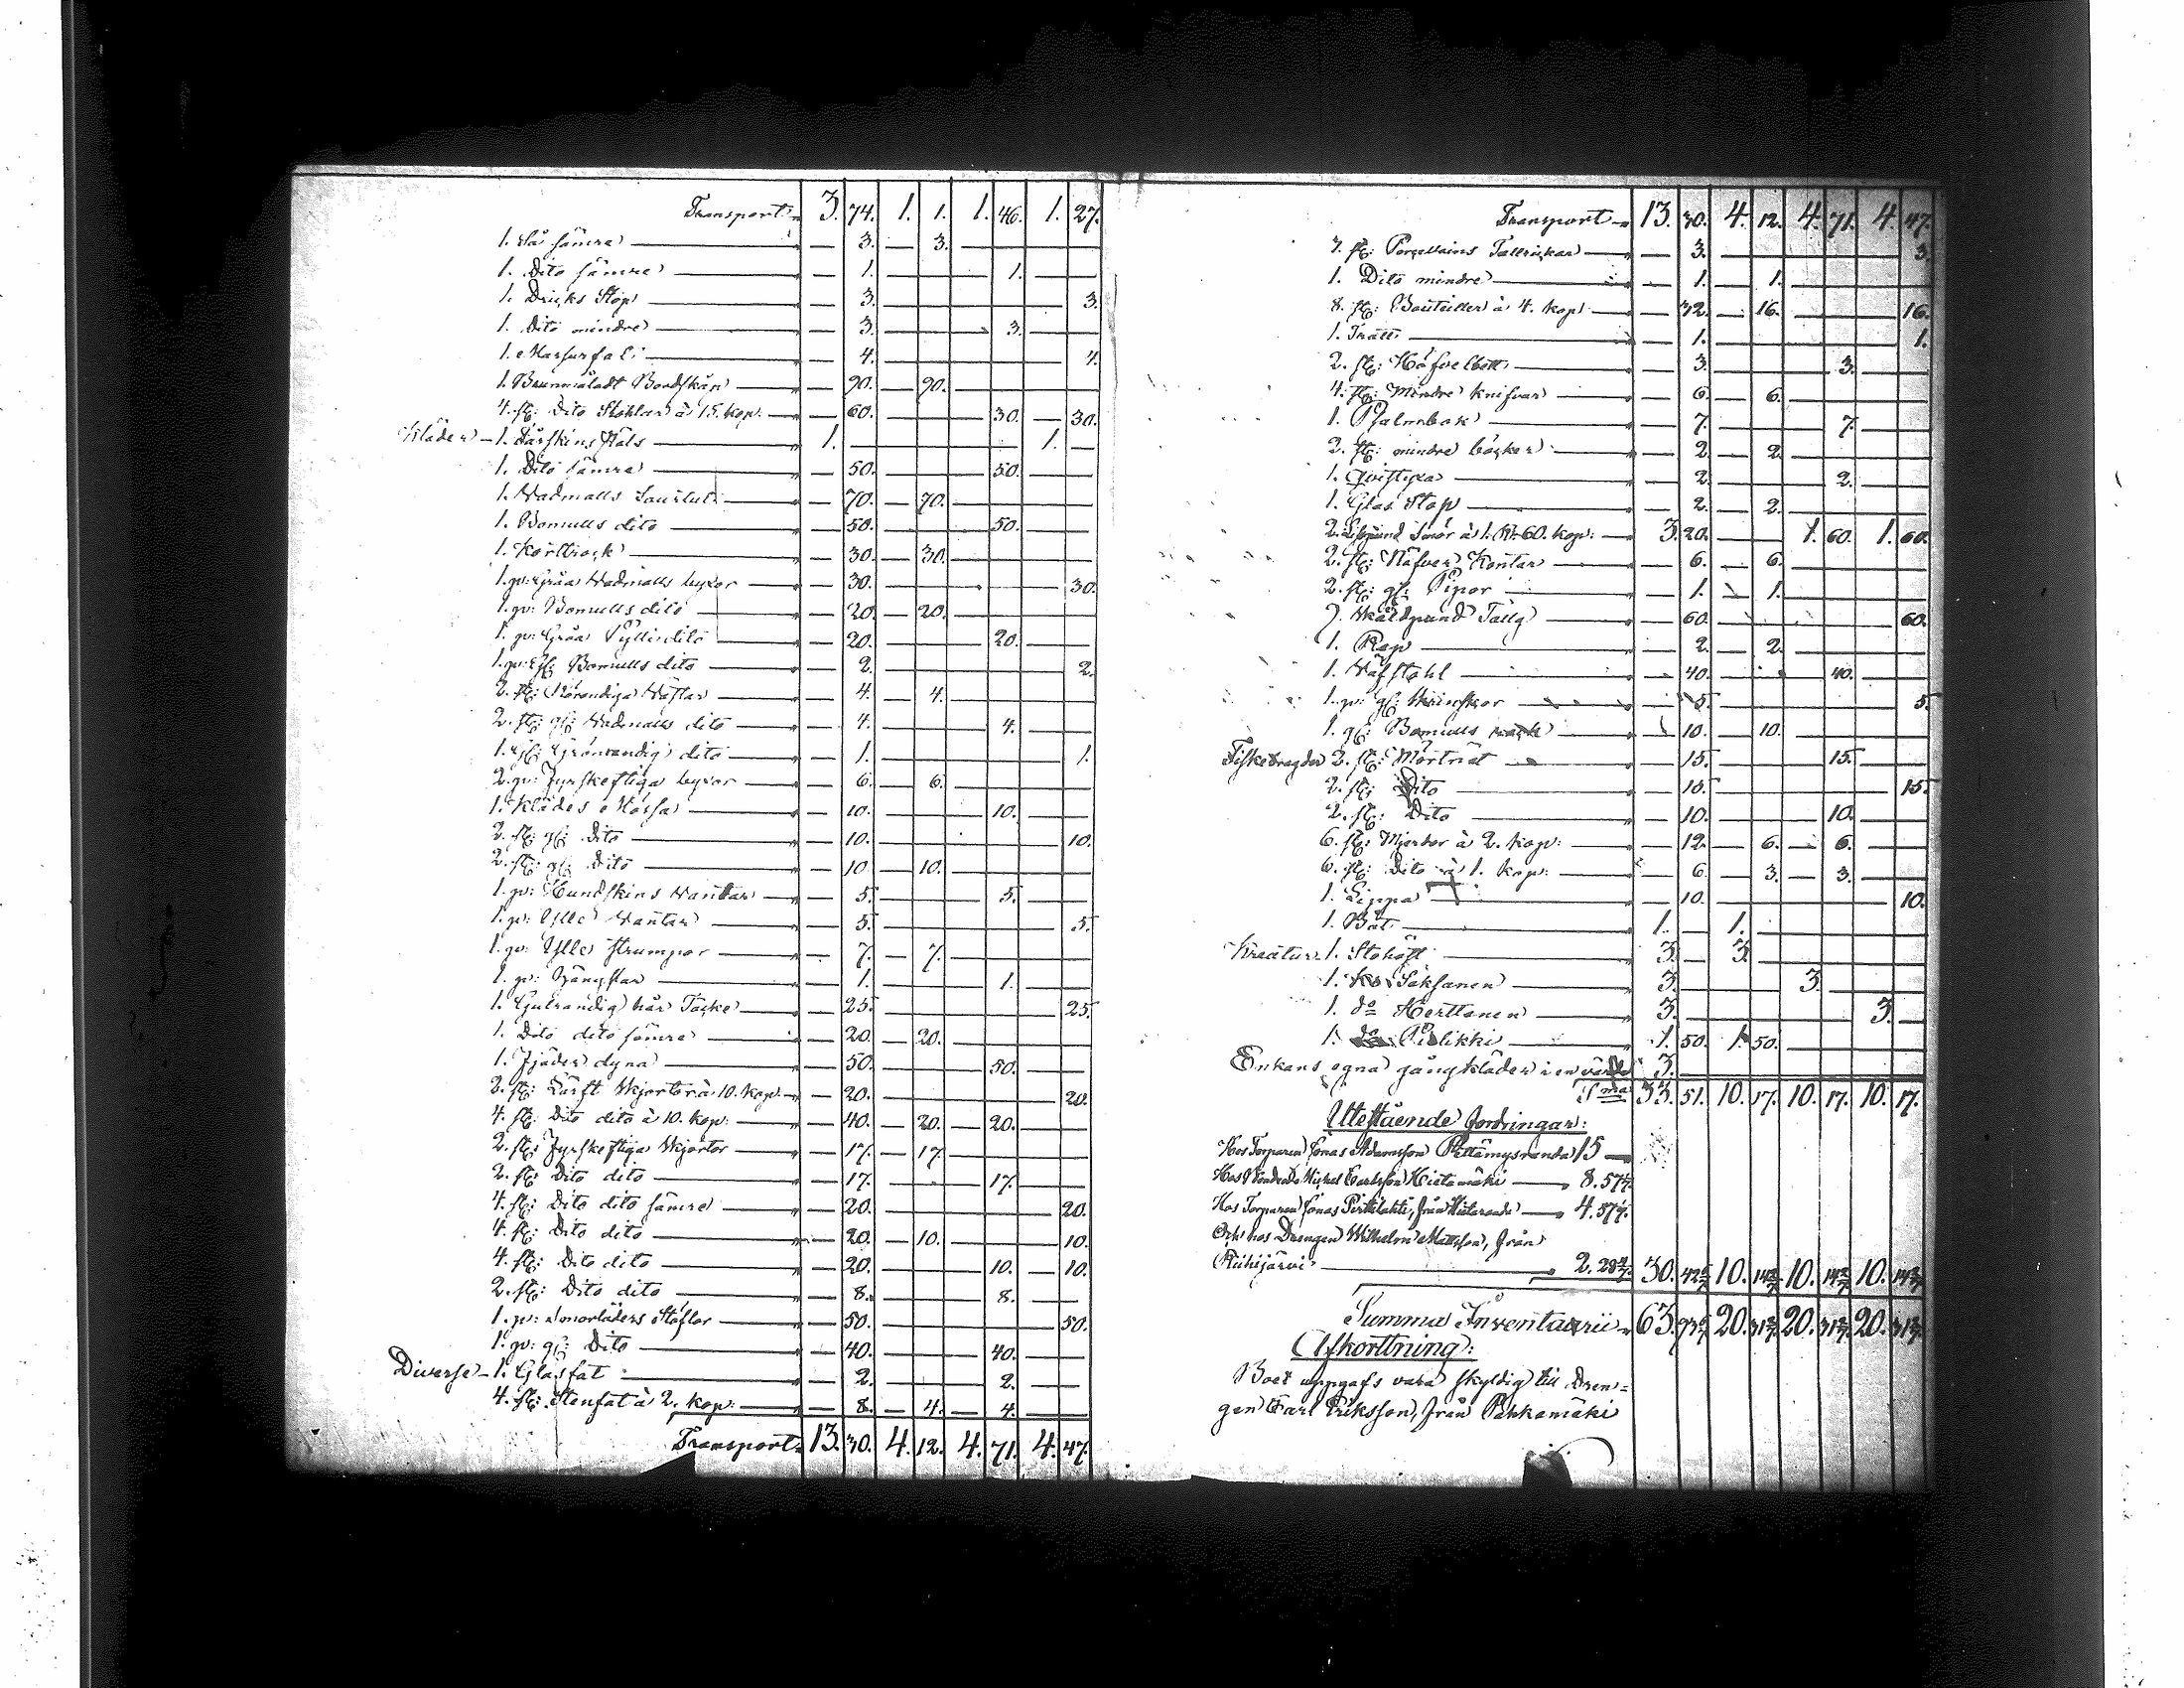 Transport 3. 74. 1. 1. 1. 46. 1. 27.
1. Så sämre — 3. — 3. —
1. Dito sämre — 1. — 1. —
1. Dricks Stop — 3. — 3.
1. Dito mindre — 3. — 3. —
1. — 4. — 4.
1. Brunmåladt Bordskän — 90. — 90. —
4. st: Dito Stohlar à 15. kop: — 60. — 30. — 30.
Kläder — 1. Fårskins Päls 1. — 1. —
1. Dito sämre — 50. — 50. —
1. Wadmalls Surtut — 70. — 70. —
1. Bomulls dito — 50. — 50. —
1. Kortrock — 30. — 30. —
1. pr: Gråa Wadmalls byxor — 30. — 30.
1. pr: Bomulls dito — 20. — 20. —
1. pr: Gråa Ylle dito — 20. — 20. —
1. pr: gl: Bomulls dito — 2. — 2.
2. st: Rörandiga Västar — 4. — 4. —
2. st: gl: Wadmalls dito — 4. — 4. —
1. gl: Grönrandig dito — 1. — 1.
2. pr: Fyrskeftiga byxor — 6. — 6. —
1. Klädes Mössa — 10. — 10. —
2. st: gl: Dito — 10. — 10.
2. st: gl: Dito — 10. — 10. —
1. pr: Hundskins Vantar — 5. — 5. —
1. pr: Ylle Vantar — 5. — 5.
1. pr: Ylle strumpor — 7. — 7. —
1. pr: — 1. — 1. —
1. Gulrandig hår Täcke — 25. — 25.
1. Dito dito sämre — 20. — 20. —
1. Fjäder dyna — 50. — 50. —
2. st: Lärft Skjortor à 10. kop: — 20. — 20.
4. st: Dito dito à 10. kop: — 40. — 20. — 20. —
2. st: Fyrskeftiga Skjortor — 17. — 17. —
2. st: Dito dito — 17. — 17. —
4. st: Dito dito sämre — 20. — 20.
4. st: Dito dito — 20. — 10. — 10.
4. st: Dito dito — 20. — 10. — 10.
2. st: Dito dito — 8. — 8. —
1. pr: Smorläders Stöflor — 50. — 50.
1. pr: gl: Dito — 40. — 40. —
Diverse — 1. Glasfat — 2. — 2. —
4. st: Stenfat à 2. kop: — 8. — 4. — 4. —
Transport 13. 30. 4. 12. 4. 71. 4. 47.
Transport 13. 30. 4. 12. 4. 71. 4. 47.
3. st: Porcellains Tallrickar — 3. — 3.
1. Dito mindre — 1. — 1. —
8. st: Bouteiller à 4. kop: — 32. — 16. — 16.
1. Tratt — 1. — 1.
2. st: Häfvelbett — 3. — 3. —
4. st: Mindre knifvar — 6. — 6. —
1. Psalmbok — 7. — 7. —
2. st: mindre böcker — 2. — 2. —
1. Qvistyxa — 2. — 2. —
1. Glas Stop — 2. — 2. —
2. Lispund Smör à 1. R. 60. kop: — 3. 20. — 1. 60. 1. 60.
2. st: Näfver Kontar — 6. — 6. —
2. st: gl: Pipor — 1. — 1. —
7. Skålpund Tallg — 60. — 60.
1. Rep — 2. — 2. —
1. Väfstohl — 40. — 40. —
1. pr: gl: Skinskor — 5. — 5.
1. gl: Bomulls rock — 10. — 10. —
Fiskebragder 2. st: Mörtnät — 15. — 15. —
2. st: Dito — 15. — 15.
2. st: Dito — 10. — 10. —
6. st: Mjerdor à 2. kop: — 12. — 6. — 6. —
6. st: Dito à 1. kop: — 6. — 3. — 3. —
1. Lippa — 10. — 10.
1. Båt 1. — 1. —
Kreatur 1. Stohäst 3. — 3. —
1. Ko Säksanen 3. — 3. —
1. do Herttanen 3. — 3. —
1. do Pislikki 1. 50. 1. 50. —
Enkans egna gångkläder i en värde 3. —
Sma 33. 51. 10. 17. 10. 17. 10. 17.
Utestående fordringar:
Hos Torparen Jonas Adamsson Pettämysranda 15 —
Hos Bonden Michel Carlsson Hietamäki — 8. 57 1/7.
Hos Torparen Jonas Pirttilahti, från — 4. 57 1/7.
Och hos Drengen Wilhelm Mattsson, från
Riihijärvi — 2. 28 4/7. 30. 42 6/7 10. 14 2/7. 10. 14 2/7. 10. 14 2/7.
Summa Inventarii 63. 93 6/7. 20. 31 2/7. 20. 31 2/7. 20. 31 2/7.
Afkorttning:
Boet uppgafs vara skyldig till Dren=
gen Carl Eriksson, från Pahkamäki